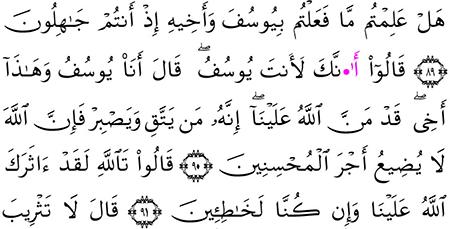 هَلْ عَلِمْتُم مَّا فَعَلْتُم بِيُوسُفَ وَأَخِيهِ إِذْ أَنتُمْ جَٰهِلُونَ
﴿٨٩﴾ قَالُوٓا۟ أَا۬نَّكَ لَأَنتَ يُوسُفُ ۖ قَالَ أَنَا۠ يُوسُفُ وَهَٰذَآ
أَخِى ۖ قَدْ مَنَّ ٱللَّهُ عَلَيْنَآ ۖ إِنَّهُۥ مَن يَتَّقِ وَيَصْبِرْ فَإِنَّ ٱللَّهَ
لَا يُضِيعُ أَجْرَ ٱلْمُحْسِنِينَ ﴿٩٠﴾ قَالُوا۟ تَٱللَّهِ لَقَدْ ءَاثَرَكَ
ٱللَّهُ عَلَيْنَا وَإِن كُنَّا لَخَٰطِـِٔينَ ﴿٩١﴾ قَالَ لَا تَثْرِيبَ